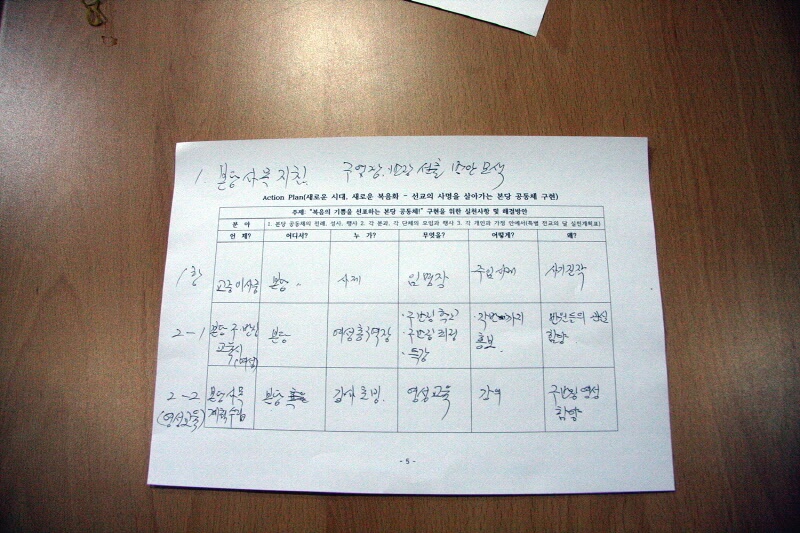 1 본당 사목 지침. 구역장, 반장 선출 방안 모색
Action Plan(새로운 시대, 새로운 복음화 - 선교의 사명을 살아가는 본당 공동체 구현)
주제: "복음의 기쁨을 선포하는 본당 공동체!" 구현을 위한 실천사항 및 해결방안
분 야 1. 본당 공동체의 전례, 성사, 행사 2. 각 분과, 각 단체의 모임과 행사 3. 각 개인과 가정 안에서(특별 전교의 달 실천계획표)
언 제? 어디서? 누 가? 무엇을? 어떻게? 왜?
1항 본당 사제 임명장 주임사제 사기진작
2-1 본당 구·반장 본당 여성총구역장 ·구반장 ·각반까지 반원들의
교육시 ·구반장 피정 홍보 함양
(여성) ·특강
2-2 본당사목 본당 강사 초빙 영성교육 강의 구반장 영성
(영성교육) 계획수립 함양
- 5 -